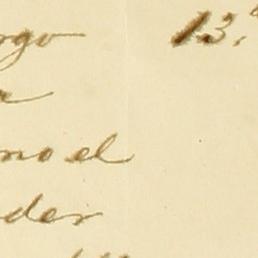 rgo 13.
a
mo el
der